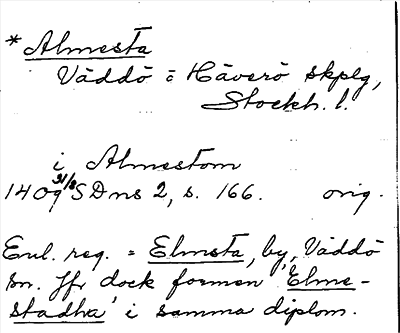 * Almesta
Väddö o Häverö skplg,
Stockh. l.
i Almestom
1409 31/8 SDns 2, s. 166. orig.
Enl. reg. = Elmsta, by, Väddö
sn. Jfr dock formen 'Elme-
stadha' i samma diplom.